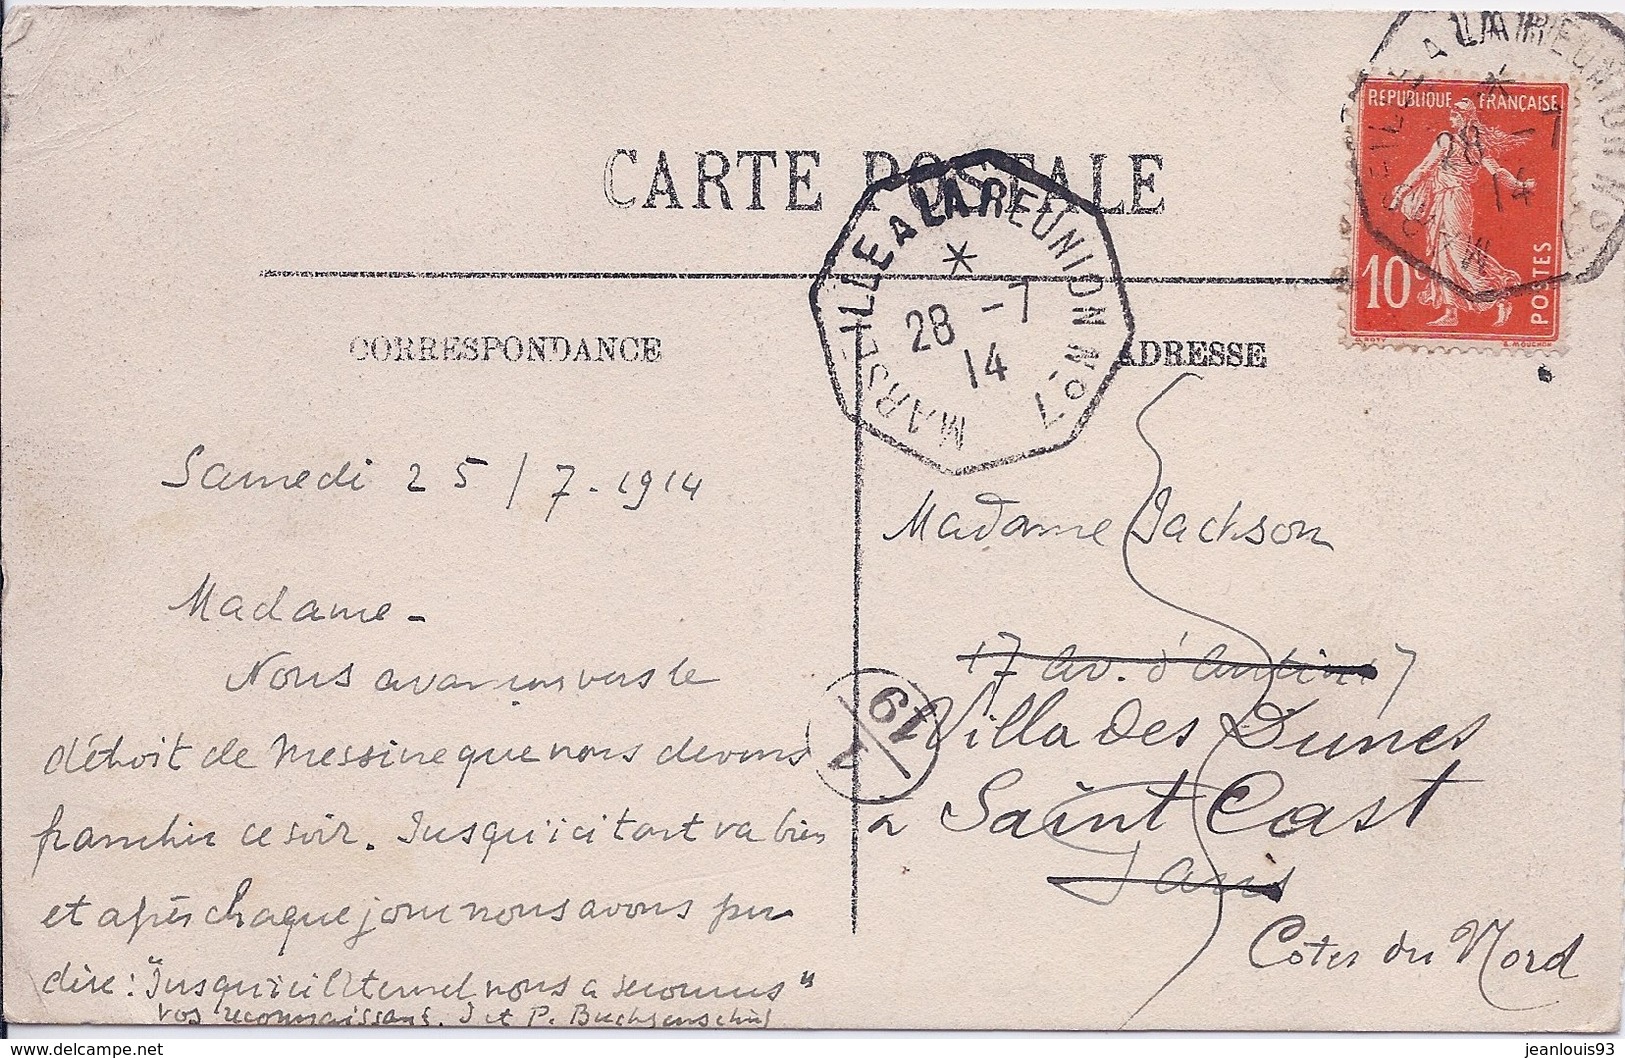 MARSEILLE A LA REUNION N°7
28 -7
14
REPUBLIQUE FRANÇAISE
10c
POSTES
O. ROTY
E. MOUCHON
CARTE POSTALE
MARSEILLE A LA REUNION N°7
28 -7
14
CORRESPONDANCE
ADRESSE
Samedi 25/7-1914
Madame-
Nous avançons vers le
détroit de Messine que nous devons
franchir ce soir. Jusqu'ici tout va bien
et après chaque jour nous avons pu
dire: "Jusqu'ici l'Eternel nous a secourus"
vos reconnaissants. J et P.
Madame Jackson
17 av. d'Antin 7
Villa des Dunes
à Saint Cast
Paris
Côtes du Nord
19
1
jeanlouis93